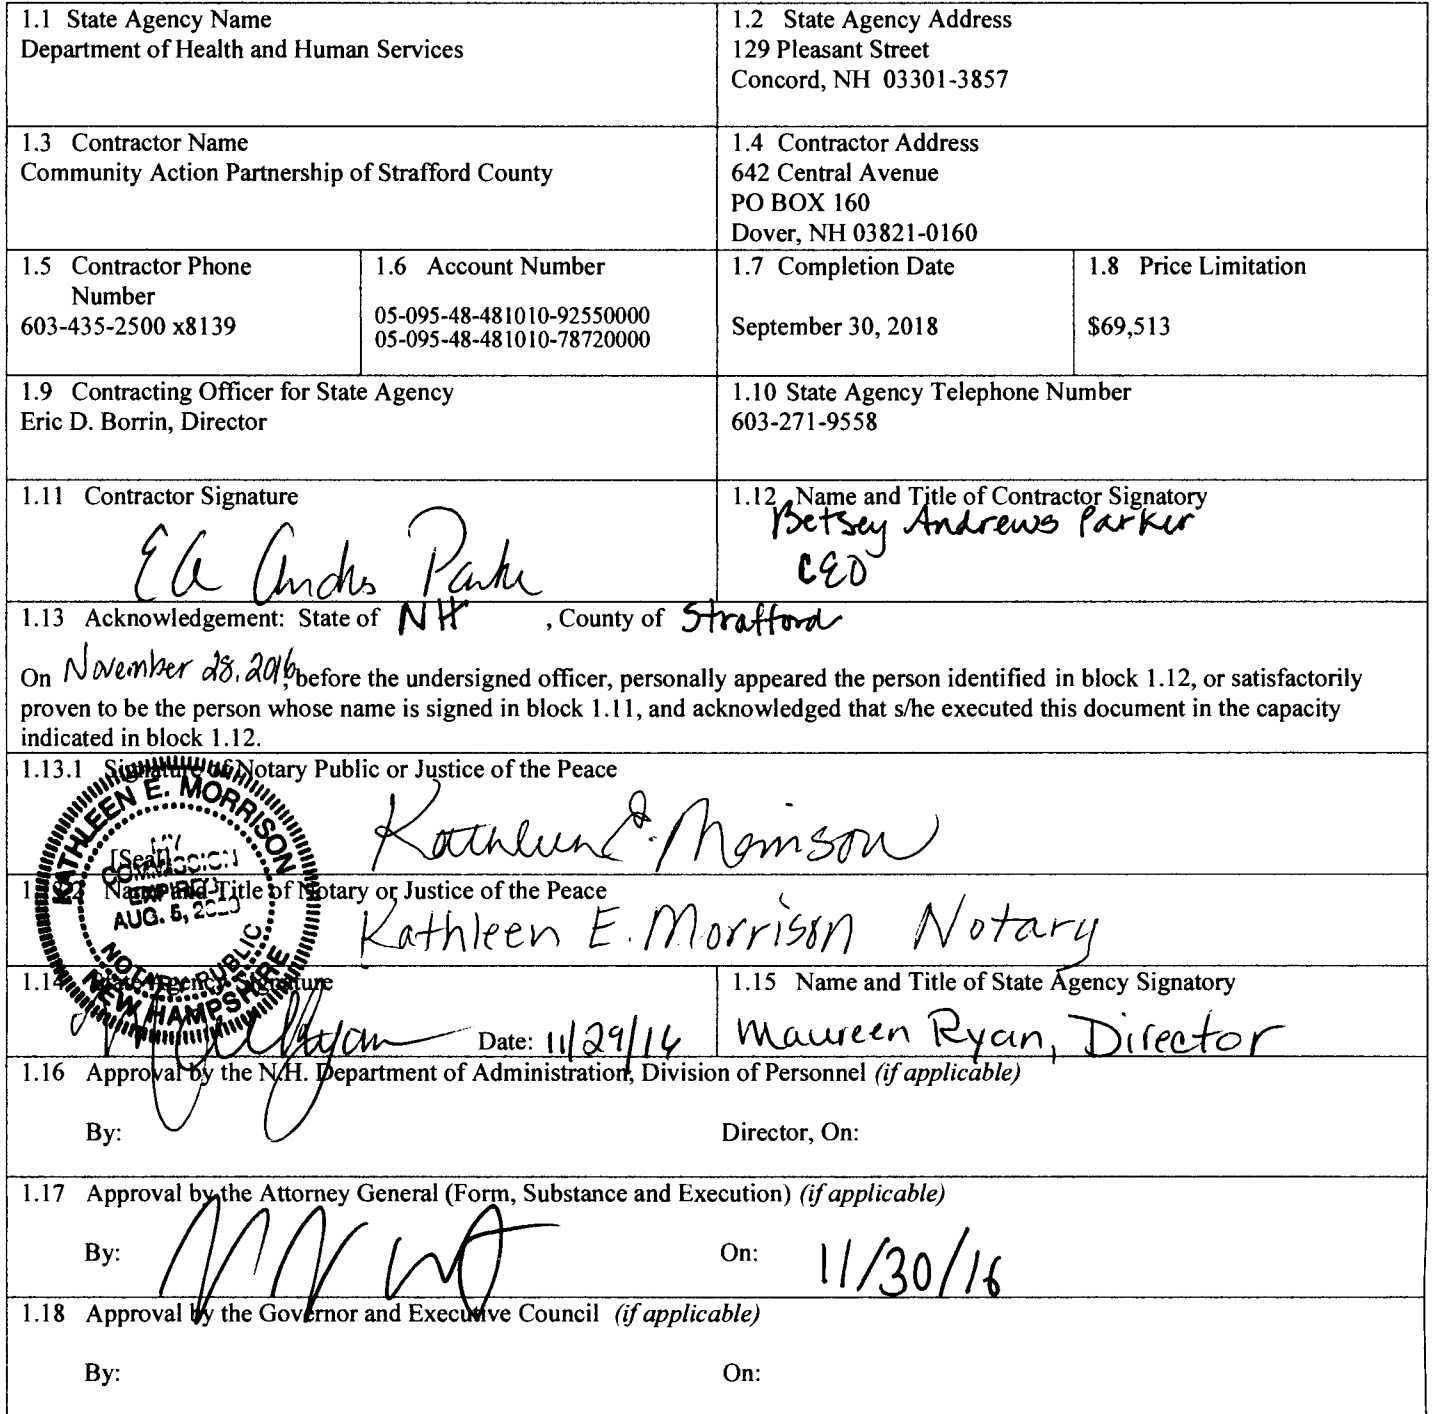 1.1 State Agency Name
Department of Health and Human Services
1.2 State Agency Address
129 Pleasant Street
Concord, NH 03301-3857
1.3 Contractor Name
Community Action Partnership of Strafford County
1.4 Contractor Address
642 Central Avenue
PO BOX 160
Dover, NH 03821-0160
1.5 Contractor Phone
Number
603-435-2500 x8139
1.6 Account Number
05-095-48-481010-92550000
05-095-48-481010-78720000
1.7 Completion Date
September 30, 2018
1.8 Price Limitation
$69,513
1.9 Contracting Officer for State Agency
Eric D. Borrin, Director
1.10 State Agency Telephone Number
603-271-9558
1.11 Contractor Signature
1.12 Name and Title of Contractor Signatory
Betsey Andrews Parker
CEO
1.13 Acknowledgement: State of NH , County of Strafford
On November 28, 2016, before the undersigned officer, personally appeared the person identified in block 1.12, or satisfactorily
proven to be the person whose name is signed in block 1.11, and acknowledged that s/he executed this document in the capacity
indicated in block 1.12.
1.13.1 Signature of Notary Public or Justice of the Peace
Kathleen E. Morrison
KATHLEEN E. MORRISON
[Seal]
MY
COMMISSION
EXPIRES
AUG. 5,
NOTARY PUBLIC
NEW HAMPSHIRE
Name and Title of Notary or Justice of the Peace
Kathleen E. Morrison Notary
1.14 State Agency Signature
Date: 11/29/16
1.15 Name and Title of State Agency Signatory
Maureen Ryan, Director
1.16 Approval by the N.H. Department of Administration, Division of Personnel (if applicable)
By: Director, On:
1.17 Approval by the Attorney General (Form, Substance and Execution) (if applicable)
By: On: 11/30/16
1.18 Approval by the Governor and Executive Council (if applicable)
By: On: